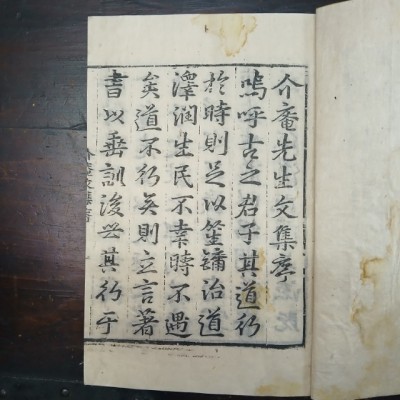 介庵先生文集序
嗚呼古之君子其道行
於時則足以笙鏞治道
澤潤生民不幸時不遇
矣道不行矣則立言著
書以垂訓後世其行乎
介庵文集序